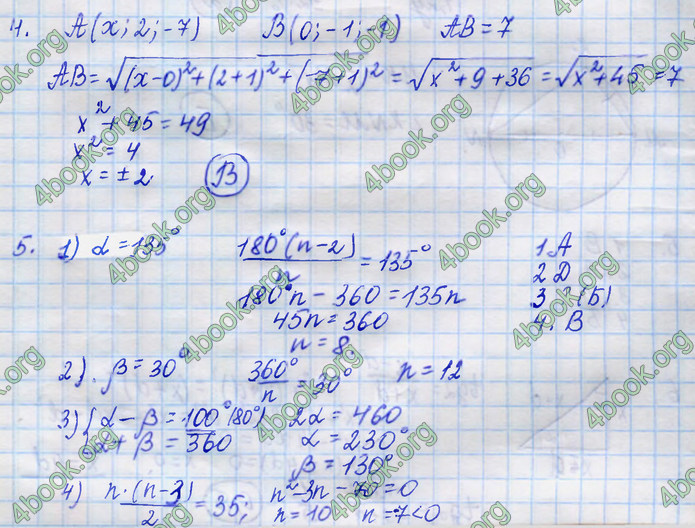 4. A(x; 2; -7) B(0; -1; -1) AB = 7
AB = √((x-0)² + (2+1)² + (-7+1)²) = √(x² + 9 + 36) = √(x² + 45) = 7
x² + 45 = 49
x² = 4
x = ± 2 В
5. 1) α = 135° 180°(n-2)/n = 135° 1 А
2 Д
180°n - 360 = 135n 3 (Б)
45n = 360 4. В
n = 8.
2). β = 30° 360°/n = 30° n = 12
3) { α - β = 100° (80°) 2α = 460
α + β = 360 α = 230°
β = 130°
4) n·(n-3)/2 = 35; n² - 3n - 70 = 0
n = 10 n = 7 < 0
4book.org